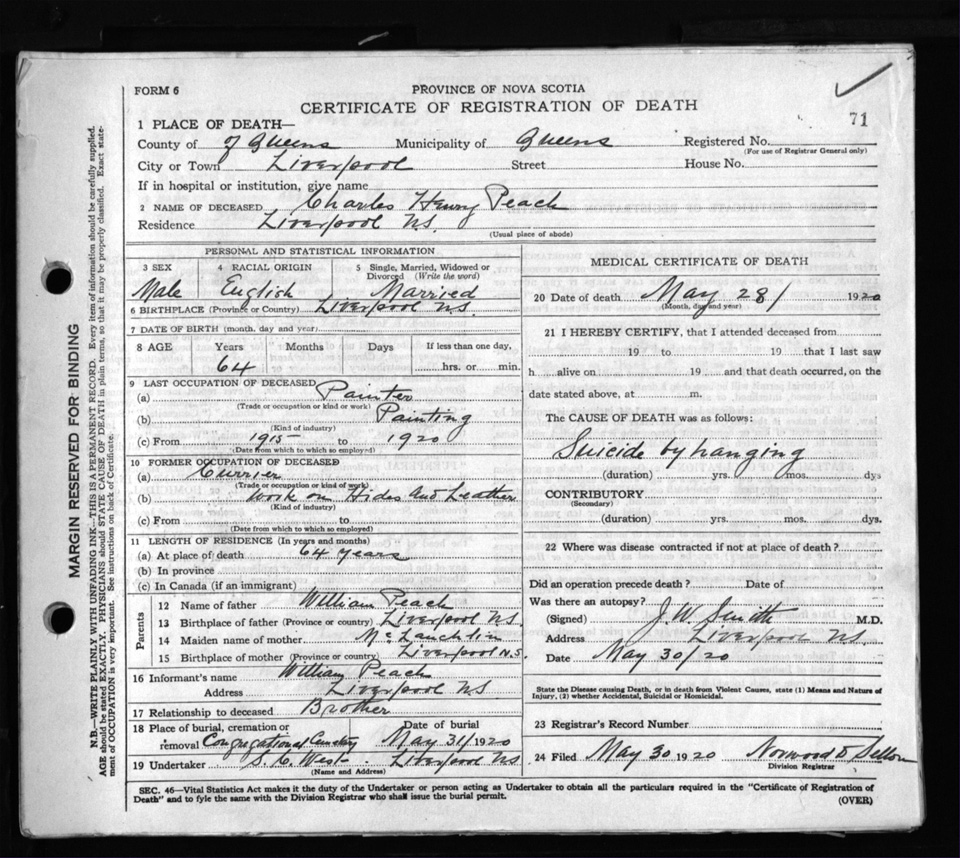 FORM 6
PROVINCE OF NOVA SCOTIA
CERTIFICATE OF REGISTRATION OF DEATH
71
1 PLACE OF DEATH—
County of of Queens Municipality of Queens Registered No.
(For use of Registrar General only)
City or Town Liverpool Street House No.
If in hospital or institution, give name
2 NAME OF DECEASED Charles Henry Peach
Residence Liverpool N.S.
(Usual place of abode)
PERSONAL AND STATISTICAL INFORMATION
3 SEX
Male
4 RACIAL ORIGIN
English
5 Single, Married, Widowed or Divorced (Write the word)
Married
6 BIRTHPLACE (Province or Country) Liverpool N.S.
7 DATE OF BIRTH (month, day and year)
8 AGE Years Months Days If less than one day,
64 hrs. or min.
9 LAST OCCUPATION OF DECEASED
(a) Painter
(Trade or occupation or kind or work)
(b) Painting
(Kind of industry)
(c) From 1915 to 1920
(Date from which to which so employed)
10 FORMER OCCUPATION OF DECEASED
(a) Currier
(Trade or occupation or kind of work)
(b) Work on Hides and Leather
(Kind of industry)
(c) From to
(Date from which to which so employed)
11 LENGTH OF RESIDENCE (In years and months)
(a) At place of death 64 years
(b) In province
(c) In Canada (if an immigrant)
Parents
12 Name of father William Peach
13 Birthplace of father (Province or country) Liverpool N.S.
14 Maiden name of mother
15 Birthplace of mother (Province or country) Liverpool N.S.
16 Informant's name William Peach
Address Liverpool N.S.
17 Relationship to deceased Brother
18 Place of burial, cremation or removal Congregational Cemetery
Date of burial May 31/1920
19 Undertaker S. C. West. Liverpool N.S.
(Name and Address)
MEDICAL CERTIFICATE OF DEATH
20 Date of death May 28/ 1920
(Month, day and year)
21 I HEREBY CERTIFY, that I attended deceased from
19 to 19 that I last saw
h alive on 19 and that death occurred, on the
date stated above, at m.
The CAUSE OF DEATH was as follows:
Suicide by hanging
(duration) yrs. mos. dys
CONTRIBUTORY
(Secondary)
(duration) yrs. mos. dys.
22 Where was disease contracted if not at place of death?
Did an operation precede death? Date of
Was there an autopsy?
(Signed) J. W. Smith M.D.
Address Liverpool N.S.
Date May 30/20
State the Disease causing Death, or in death from Violent Causes, state (1) Means and Nature of
Injury, (2) whether Accidental, Suicidal or Homicidal.
23 Registrar's Record Number
24 Filed May 30 1920 Norwood
Division Registrar
SEC. 46—Vital Statistics Act makes it the duty of the Undertaker or person acting as Undertaker to obtain all the particulars required in the "Certificate of Registration of
Death" and to fyle the same with the Division Registrar who shall issue the burial permit.
(OVER)
MARGIN RESERVED FOR BINDING
N.B.—WRITE PLAINLY WITH UNFADING INK—THIS IS A PERMANENT RECORD. Every item of information should be carefully supplied.
AGE should be stated EXACTLY. PHYSICIANS should STATE CAUSE OF DEATH in plain terms, so that it may be properly classified. Exact statement of OCCUPATION is very important. See instructions on back of Certificate.